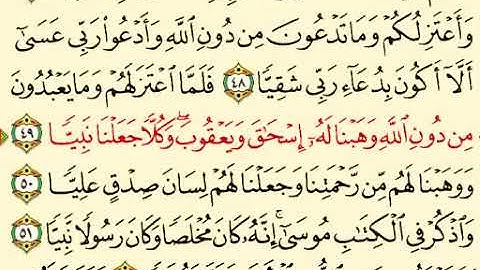 وَأَعْتَزِلُكُمْ وَمَا تَدْعُونَ مِن دُونِ ٱللَّهِ وَأَدْعُوا۟ رَبِّى عَسَىٰٓ
أَلَّآ أَكُونَ بِدُعَآءِ رَبِّى شَقِيًّا ٤٨ فَلَمَّا ٱعْتَزَلَهُمْ وَمَا يَعْبُدُونَ
مِن دُونِ ٱللَّهِ وَهَبْنَا لَهُۥٓ إِسْحَٰقَ وَيَعْقُوبَ ۖ وَكُلًّا جَعَلْنَا نَبِيًّا ٤٩
وَوَهَبْنَا لَهُم مِّن رَّحْمَتِنَا وَجَعَلْنَا لَهُمْ لِسَانَ صِدْقٍ عَلِيًّا ٥٠
وَٱذْكُرْ فِى ٱلْكِتَٰبِ مُوسَىٰٓ ۚ إِنَّهُۥ كَانَ مُخْلَصًا وَكَانَ رَسُولًا نَّبِيًّا ٥١